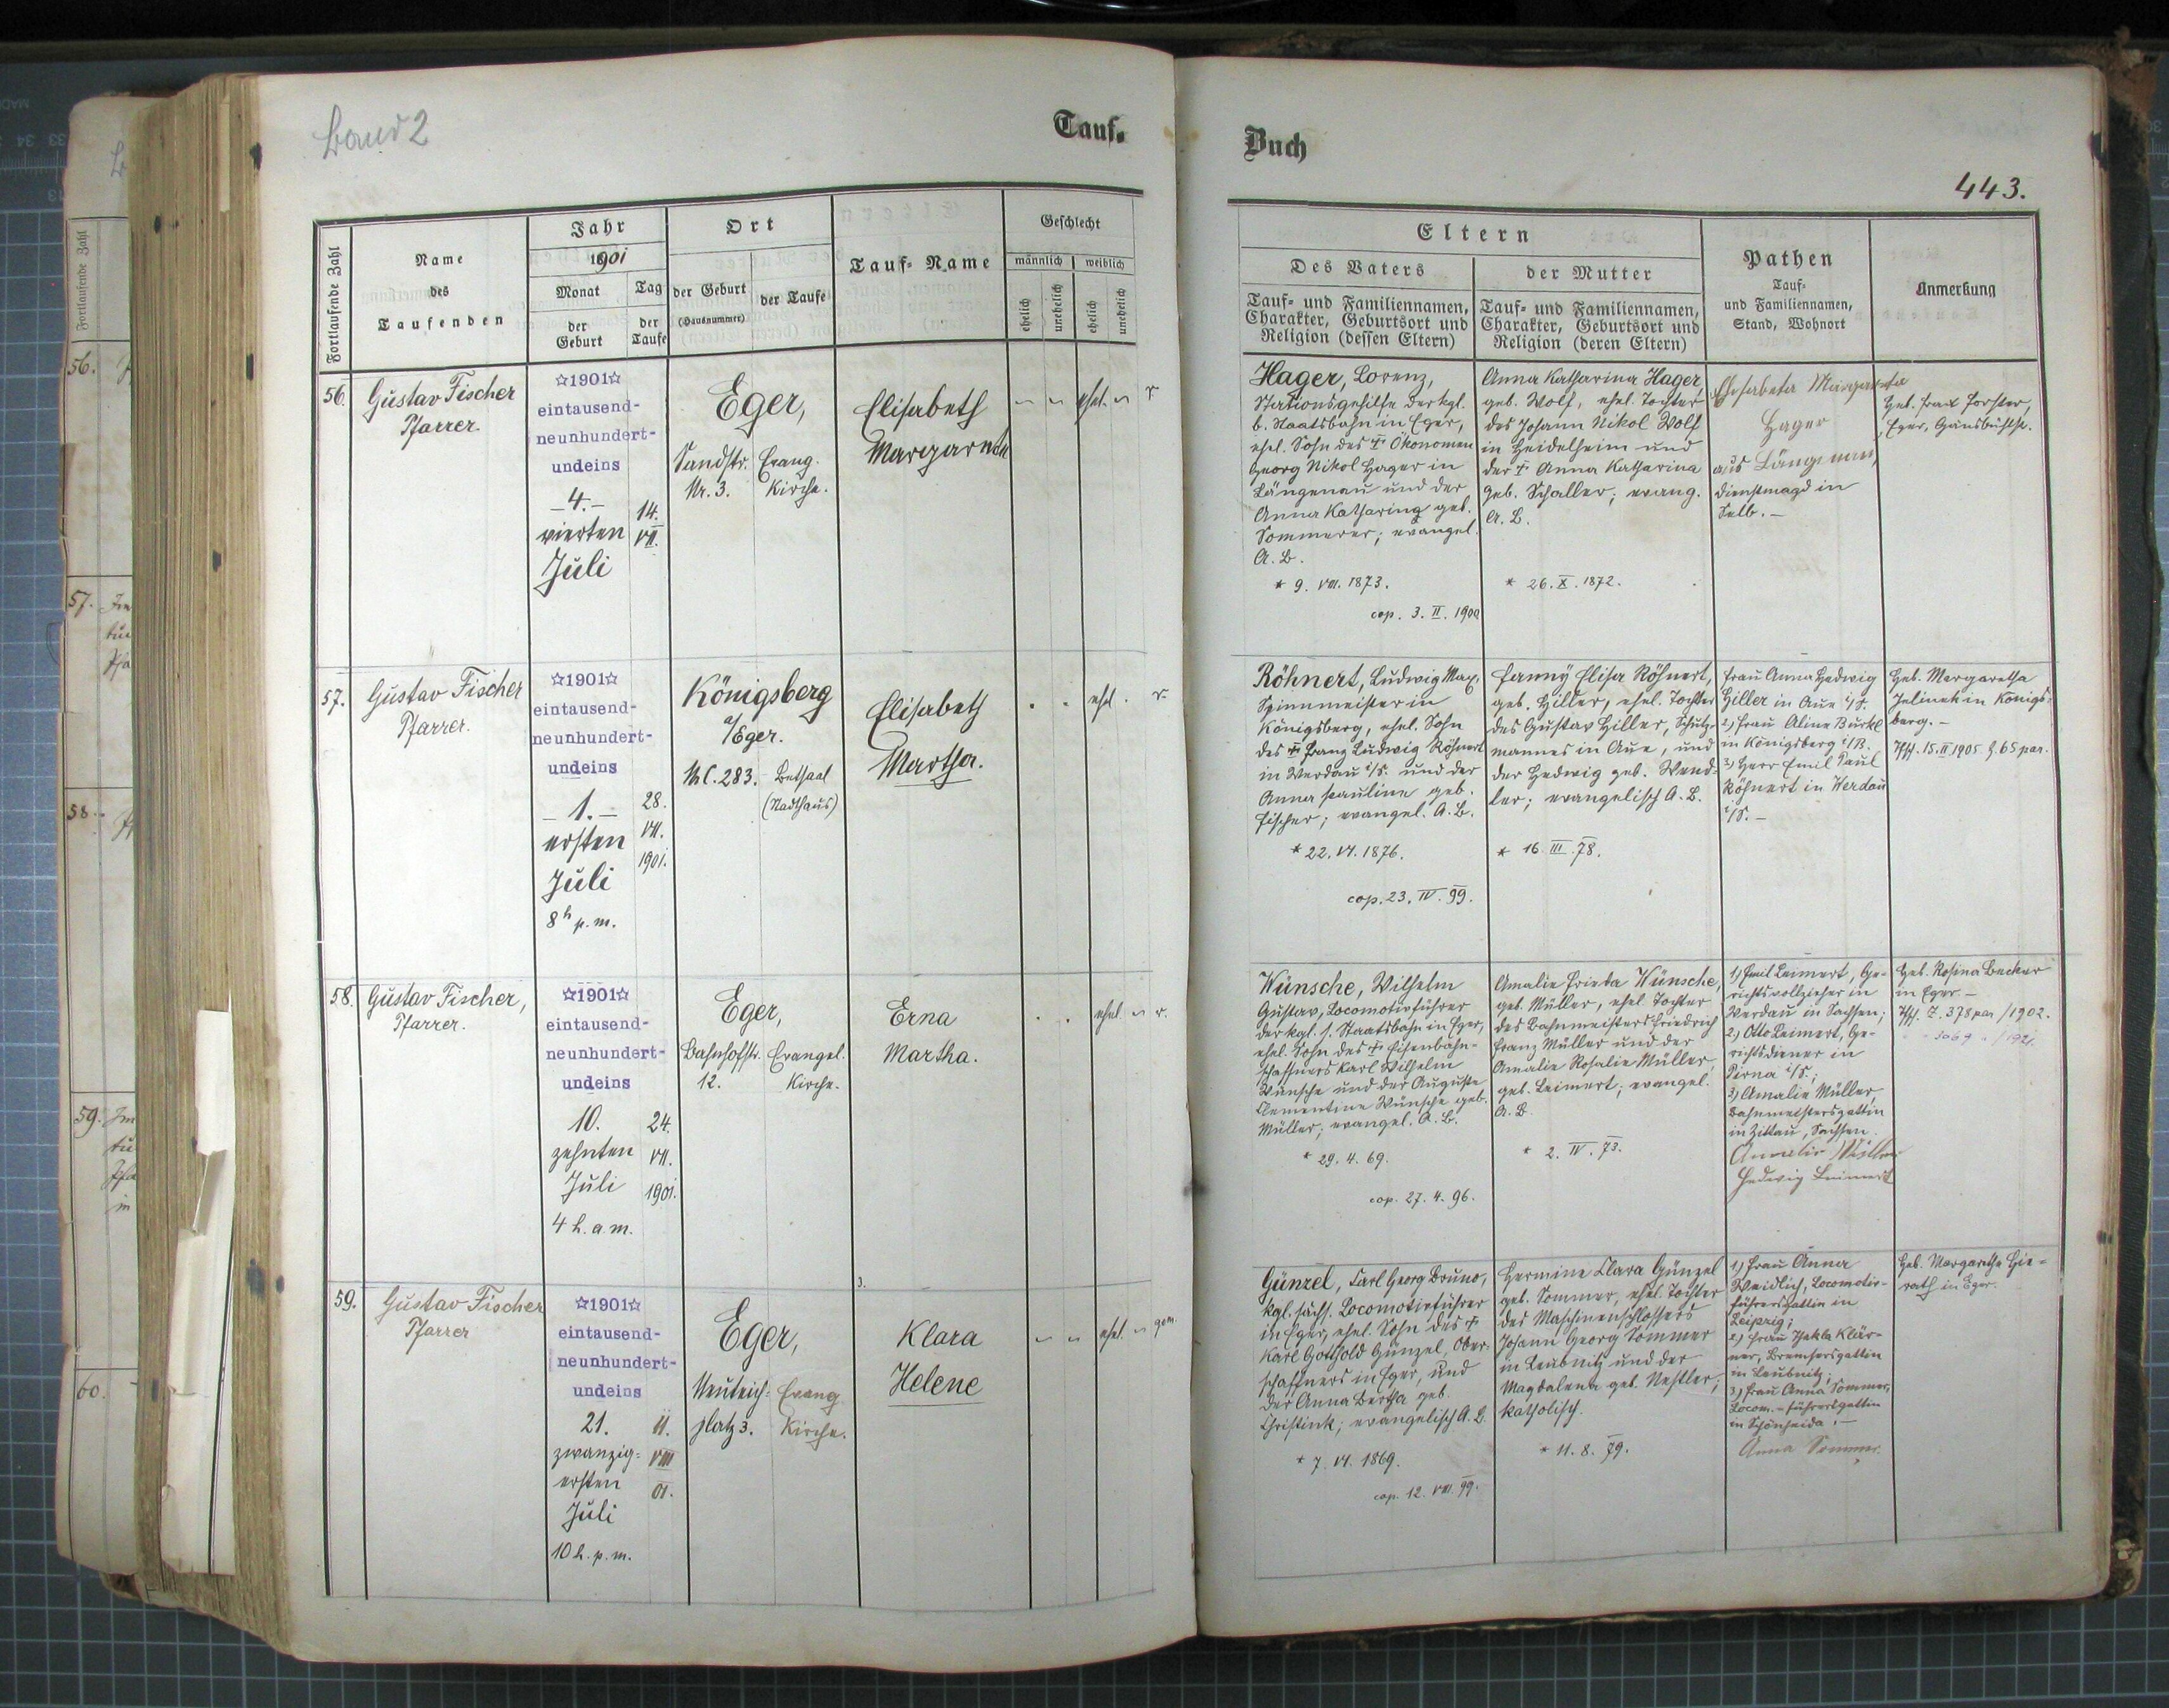 Band 2
Tauf-
Buch
443.
Fortlaufende Zahl
Name
des
Taufenden
Jahr
1901
Monat
der
Geburt
Tag
der
Taufe
Ort
der Geburt
(Hausnummer)
der Taufe
Tauf-Name
Geschlecht
männlich
weiblich
ehelich
unehelich
ehelich
unehelich
Eltern
Des Vaters
Tauf- und Familiennamen,
Charakter, Geburtsort und
Religion (dessen Eltern)
der Mutter
Tauf- und Familiennamen,
Charakter, Geburtsort und
Religion (deren Eltern)
Pathen
Tauf-
und Familiennamen,
Stand, Wohnort
Anmerkung
56.
Gustav Fischer
Pfarrer.
☆1901☆
eintausend-
neunhundert-
undeins
- 4. -
vierten
Juli
14.
VII.
Eger,
Sandstr.
Nr. 3.
Evang.
Kirche.
Elisabeth
Margareta
ehel.
Hager, Lorenz,
Stationsgehilfe der kgl.
b. Staatsbahn in Eger,
ehel. Sohn des † Ökonomen
Georg Nikol Hager in
Längenau und der
Anna Katharina geb.
Sommerer; evangel.
A. B.
* 9. VIII. 1873.
cop. 3. II. 1900
Anna Katharina Hager,
geb. Wolf, ehel. Tochter
des Johann Nikol Wolf
in Heidelheim und
der † Anna Katharina
geb. Schaller; evang.
A. B.
* 26. X. 1872.
Elisabeta Margareta
Hager
aus Längenau,
Dienstmagd in
Selb. -
Heb. Frau Forster,
Eger, Gänsbühlstr.
57.
Gustav Fischer
Pfarrer.
☆1901☆
eintausend-
neunhundert-
undeins
- 1. -
ersten
Juli
8h p. m.
28.
VII.
1901.
Königsberg
a/Eger.
N.C. 283.
Betsaal
(Stadthaus)
Elisabeth
Martha.
ehel.
Röhnert, Ludwig Max,
Spinnmeister in
Königsberg, ehel. Sohn
des † Franz Ludwig Röhnert
in Werdau i/S. und der
Anna Pauline geb.
Fischer; evangel. A. B.
* 22. VI. 1876.
cop. 23. IV. 99.
Fanny Elisa Röhnert,
geb. Hiller, ehel. Tochter
des Gustav Hiller, Schutz-
mannes in Aue, und
der Hedwig geb. Wend-
ler; evangelisch A. B.
* 16. III. 78.
Frau Anna Hedwig
Hiller in Aue i/S.
2) Frau Aline Burkl
in Königsberg i/B.
3) Herr Emil Paul
Röhnert in Werdau
i/S. -
Heb. Margaretha
Jelinek in Königs-
berg. -
15. II 1905 65 par.
58.
Gustav Fischer,
Pfarrer.
☆1901☆
eintausend-
neunhundert-
undeins
10.
zehnten
Juli
4 h. a. m.
24.
VII.
1901.
Eger,
Bahnhofstr.
12.
Evangel.
Kirche.
Erna
Martha.
ehel.
Wünsche, Wilhelm
Gustav, Locomotivführer
der kgl. s. Staatsbahn in Eger,
ehel. Sohn des † Eisenbahn-
schaffners Karl Wilhelm
Wünsche und der Auguste
Clementine Wünsche geb.
Müller; evangel. A. B.
* 29. 4. 69.
cop. 27. 4. 96.
Amalie Frieda Wünsche,
geb. Müller, ehel. Tochter
des Bahnmeisters Friedrich
Franz Müller und der
Amalie Rosalie Müller,
geb. Leimert; evangel.
A. B.
* 2. IV. 73.
1) Emil Leimert, Ge-
richtsvollzieher in
Werdau in Sachsen;
2) Otto Leimert, Ge-
richtsdiener in
Pirna i/S.;
3) Amalie Müller,
Bahnmeistersgattin
in Zittau, Sachsen.
Amalie Müller
Hedwig Leimert
Heb. Rosina Becker
in Eger. -
Z. 378 par /1902.
59.
Gustav Fischer
Pfarrer
☆1901☆
eintausend-
neunhundert-
undeins
21.
zwanzig-
ersten
Juli
10 h. p. m.
11.
VIII
01.
Eger,
Neuteich-
platz 3.
Evang
Kirche.
3.
Klara
Helene
ehel.
gem.
Günzel, Karl Georg Bruno,
kgl. sächs. Locomotivführer
in Eger, ehel. Sohn des †
Karl Gotthold Günzel, Ober-
schaffners in Eger, und
der Anna Bertha geb.
Christink; evangelisch A. B.
* 7. VI. 1869.
cop. 12. VIII. 99.
Hermine Clara Günzel
geb. Sommer, ehel. Tochter
des Maschinenschlossers
Johann Georg Sommer
in Leubnitz und der
Magdalena geb. Nestler;
katholisch.
* 11. 8. 79.
1) Frau Anna
Weidlich, Locomotiv-
führersgattin in
Leipzig;
2) Frau Thekla Klär-
ner, Bremsersgattin
in Leubnitz;
3) Frau Anna Sommer,
Locom.-führersgattin
in Schönheida. -
Anna Sommer.
Heb. Margaretha Hie-
rath in Eger.
56.
57.
58.
59.
60.